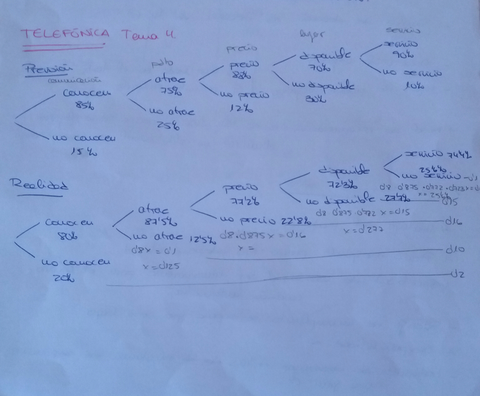 TELEFÓNICA Tema 4.
Previsión
comunicación pdto precio lugar servicio
conocen 85%
no conocen 15%
atrae 75%
no atrae 25%
precio 88%
no precio 12%
disponible 70%
no disponible 30%
servicio 90%
no servicio 10%
Realidad
conocen 80%
no conocen 20%
atrae 87'5%
no atrae 12'5%
0'8x = 0'1
x = 0'125
precio 77'2%
no precio 22'8%
0'8·0'875x = 0'16
x =
disponible 72'3%
no disponible 27'7%
0'8 0'875 0'772 x = 0'15
x = 0'277
servicio 74'4%
no servicio 25'6%
0'15
0'16
0'10
0'2